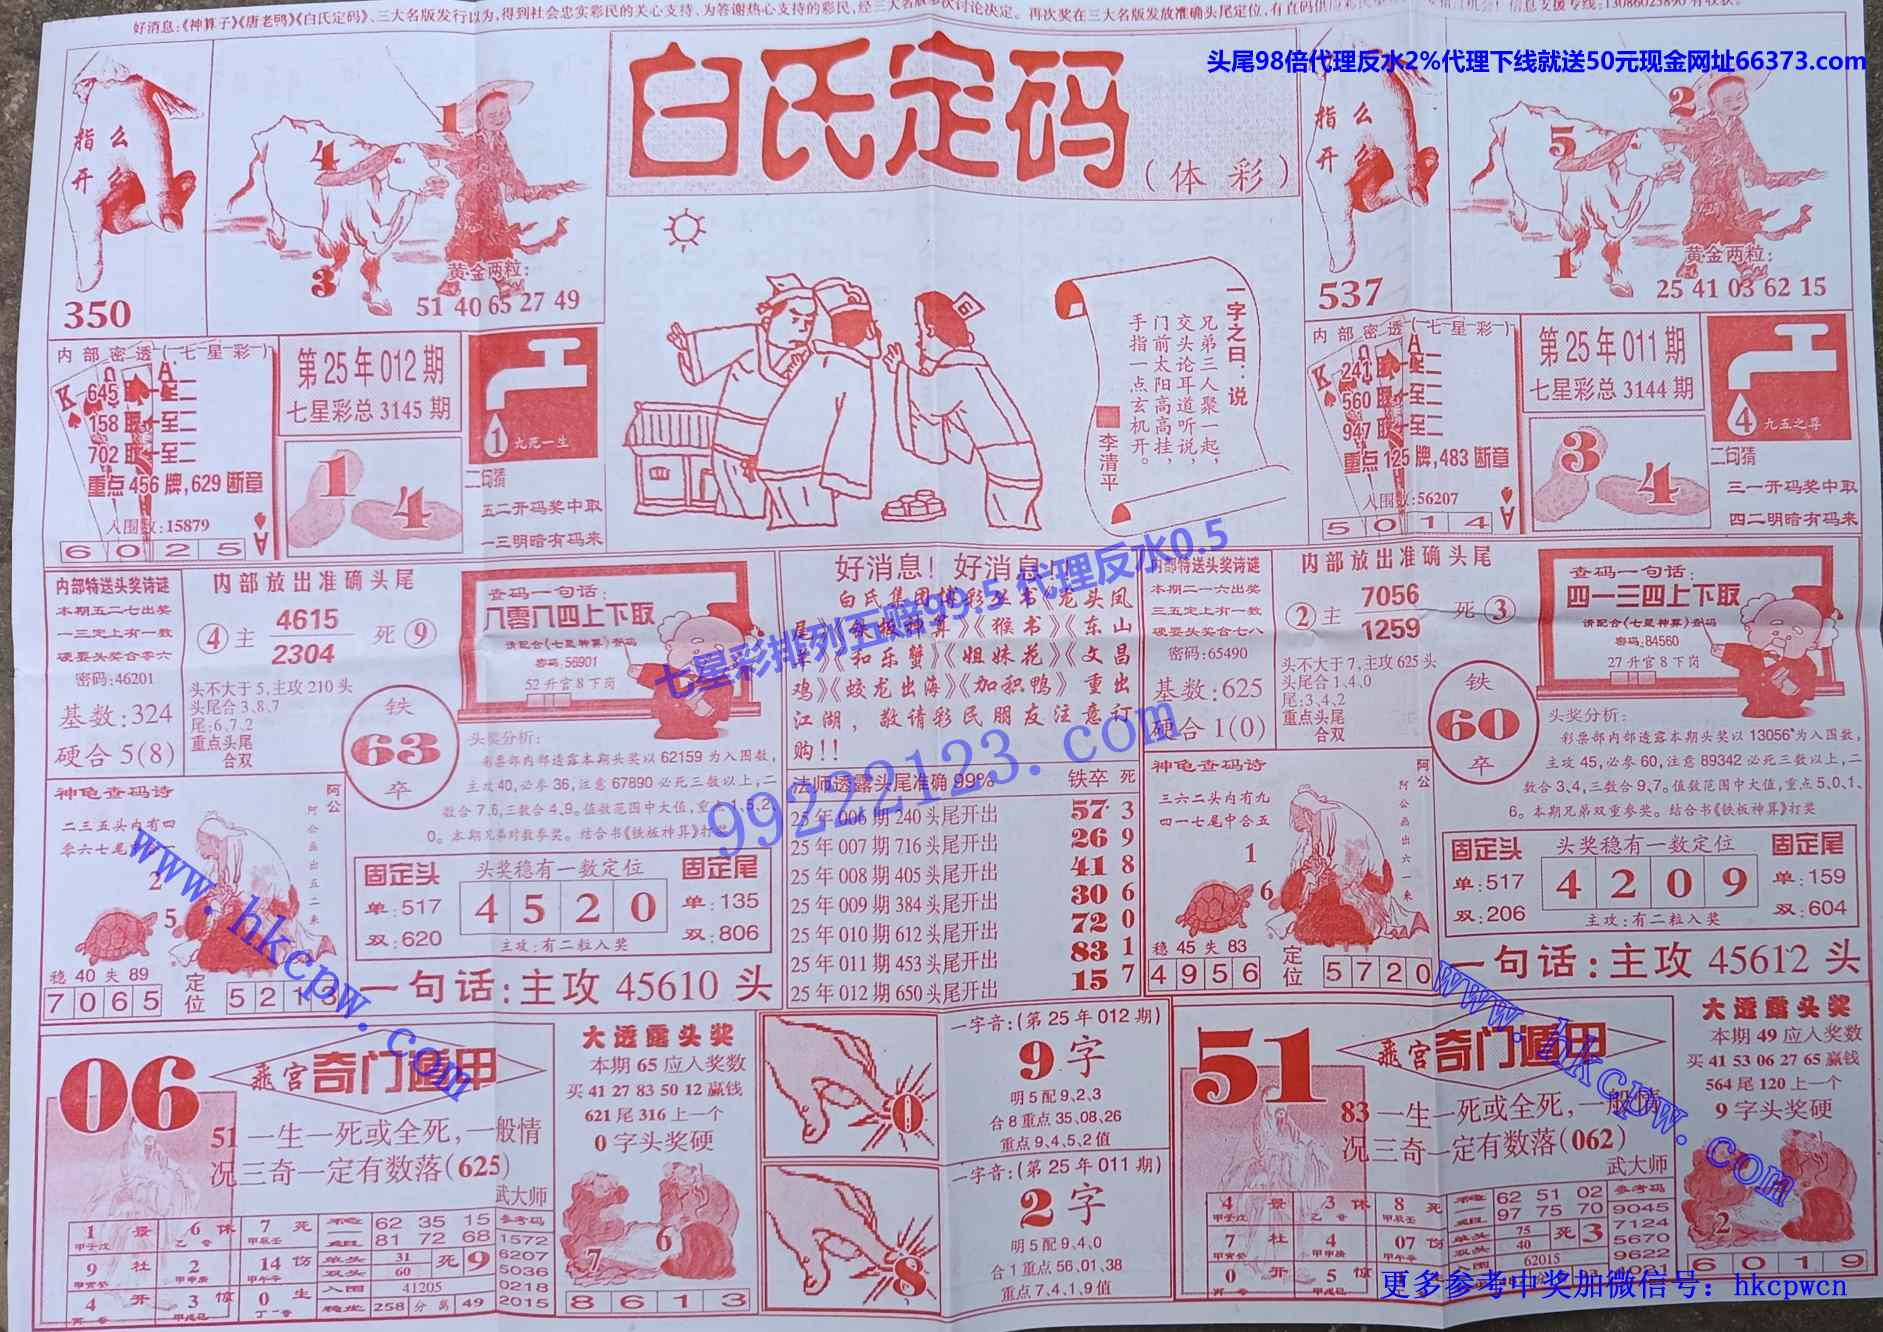 好消息:《神算子》《唐老鸭》《白氏定码》、三大名版发行以为,得到社会忠实彩民的关心支持、为答谢热心支持的彩民,经三大名版多次讨论决定。再次奖在三大名版发放准确头尾定位,
头尾98倍代理反水2%代理下线就送50元现金网址66373.com
白氏定码
(体彩)
指么
开么
350
1
4
3
黄金两粒:
51 40 65 27 49
内部密透(七星彩)
K Q A
645 取一至二
158 取一至二
702 取一至二
重点 456 牌,629 断章
入围数:15879
6 0 2 5
第25年012期
七星彩总3145期
1 4
1 九死一生
二句猜
五二开码奖中取
一三明暗有码来
一字之曰:说
兄弟三人聚一起,
交头论耳道听说,
门前太阳高高挂,
手指一点玄机开。
李清平
指么
开么
537
2
5
1
黄金两粒:
25 41 03 62 15
内部密透(七星彩)
K Q A
241 取一至二
560 取一至二
947 取一至二
重点 125 牌,483 断章
入围数:56207
5 0 1 4
第25年011期
七星彩总3144期
3 4
4 九五之尊
二句猜
三一开码奖中取
四二明暗有码来
内部特送头奖诗谜
本期五二七出奖
一三定上有一数
硬要头奖合零六
密码:46201
基数:324
硬合5(8)
内部放出准确头尾
④主 4615 死⑨
2304
头不大于5,主攻210头
头尾合3、8、7
尾:6、7、2
重点头尾
合双
铁
63
卒
查码一句话:
八零八四上下取
请配合《七星神算》查码
密码:56901
52升官8下岗
头奖分析:
彩票部内部透露本期头奖以62159为入围数,
主攻40,必参36,注意67890必死三数以上,二
数合7、6,三数合4、9。值数范围中大值,重点1、5、2、
0。本期兄弟对数参奖。结合书《铁板神算》打奖
神龟查码诗
二三五头内有四
零六七尾
2
5
阿公
阿公画出五二来
稳40失89
7 0 6 5
定位
5 2 1 3
固定头
单:517
双:620
头奖稳有一数定位
4 5 2 0
主攻:有二粒入奖
固定尾
单:135
双:806
一句话:主攻45610头
好消息!好消息!!
白氏集团博彩丛书《龙头凤
尾》《铁板神算》《猴书》《东山
羊》《和乐蟹》《姐妹花》《文昌
鸡》《蛟龙出海》《加积鸭》重出
江湖,敬请彩民朋友注意订
购!!
法师透露头尾准确99% 铁卒 死
25年006期240头尾开出 57 3
25年007期716头尾开出 26 9
25年008期405头尾开出 41 8
25年009期384头尾开出 30 6
25年010期612头尾开出 72 0
25年011期453头尾开出 83 1
25年012期650头尾开出 15 7
七星彩排列五赔99.5 代理反水0.5
99222123.com
内部特送头奖诗谜
本期二一六出奖
三五定上有一数
硬要头奖合七八
密码:65490
基数:625
硬合1(0)
内部放出准确头尾
②主 7056 死③
1259
头不大于7,主攻625头
头尾合1、4、0
尾:3、4、2
重点头尾
合双
铁
60
卒
查码一句话:
四一三四上下取
请配合《七星神算》查码
密码:84560
27升官8下岗
头奖分析:
彩票部内部透露本期头奖以13056为入围数,
主攻45,必参60,注意89342必死三数以上,二
数合3、4,三数合9、7。值数范围中大值,重点5、0、1、
6。本期兄弟双重参奖。结合书《铁板神算》打奖
神龟查码诗
三六二头内有九
四一七尾中合五
1
6
阿公
阿公画出六一来
稳45失83
4 9 5 6
定位
5 7 2 0
固定头
单:517
双:206
头奖稳有一数定位
4 2 0 9
主攻:有二粒入奖
固定尾
单:159
双:604
一句话:主攻45612头
www.hkcpw.com
06
飛宫奇门遁甲
51一生一死或全死,一般情
况三奇一定有数落(625)
武大师
1 景 6 休 7 死
9 杜 2 14 伤
4 开 3 惊 0 生
62 35 15
81 72 68
单头 31
双头 60
死 9
入围 41205
稳坐 258 分为 49
参考码
1572
6207
5036
0218
2015
大透露头奖
本期65应入奖数
买4127835012赢钱
621尾316上一个
0字头奖硬
7 6
8 6 1 3
0
8
一字音:(第25年012期)
9字
明5配9、2、3
合8重点35、08、26
重点9、4、5、2值
一字音:(第25年011期)
2字
明5配9、4、0
合1重点56、01、38
重点7、4、1、9值
51
飛宫奇门遁甲
83一生一死或全死,一般情
况三奇一定有数落(062)
武大师
4 景 3 休 8 死
7 杜 4 07 伤
0 开 5 惊
62 51 02
97 75 70
单头 75
双头 40
死 3
62015
参考码
9045
7124
5670
9622
大透露头奖
本期49应入奖数
买4153062765赢钱
564尾120上一个
9字头奖硬
2
6 0 1 9
www.hkcpw.com
更多参考中奖加微信号: hkcpwcn